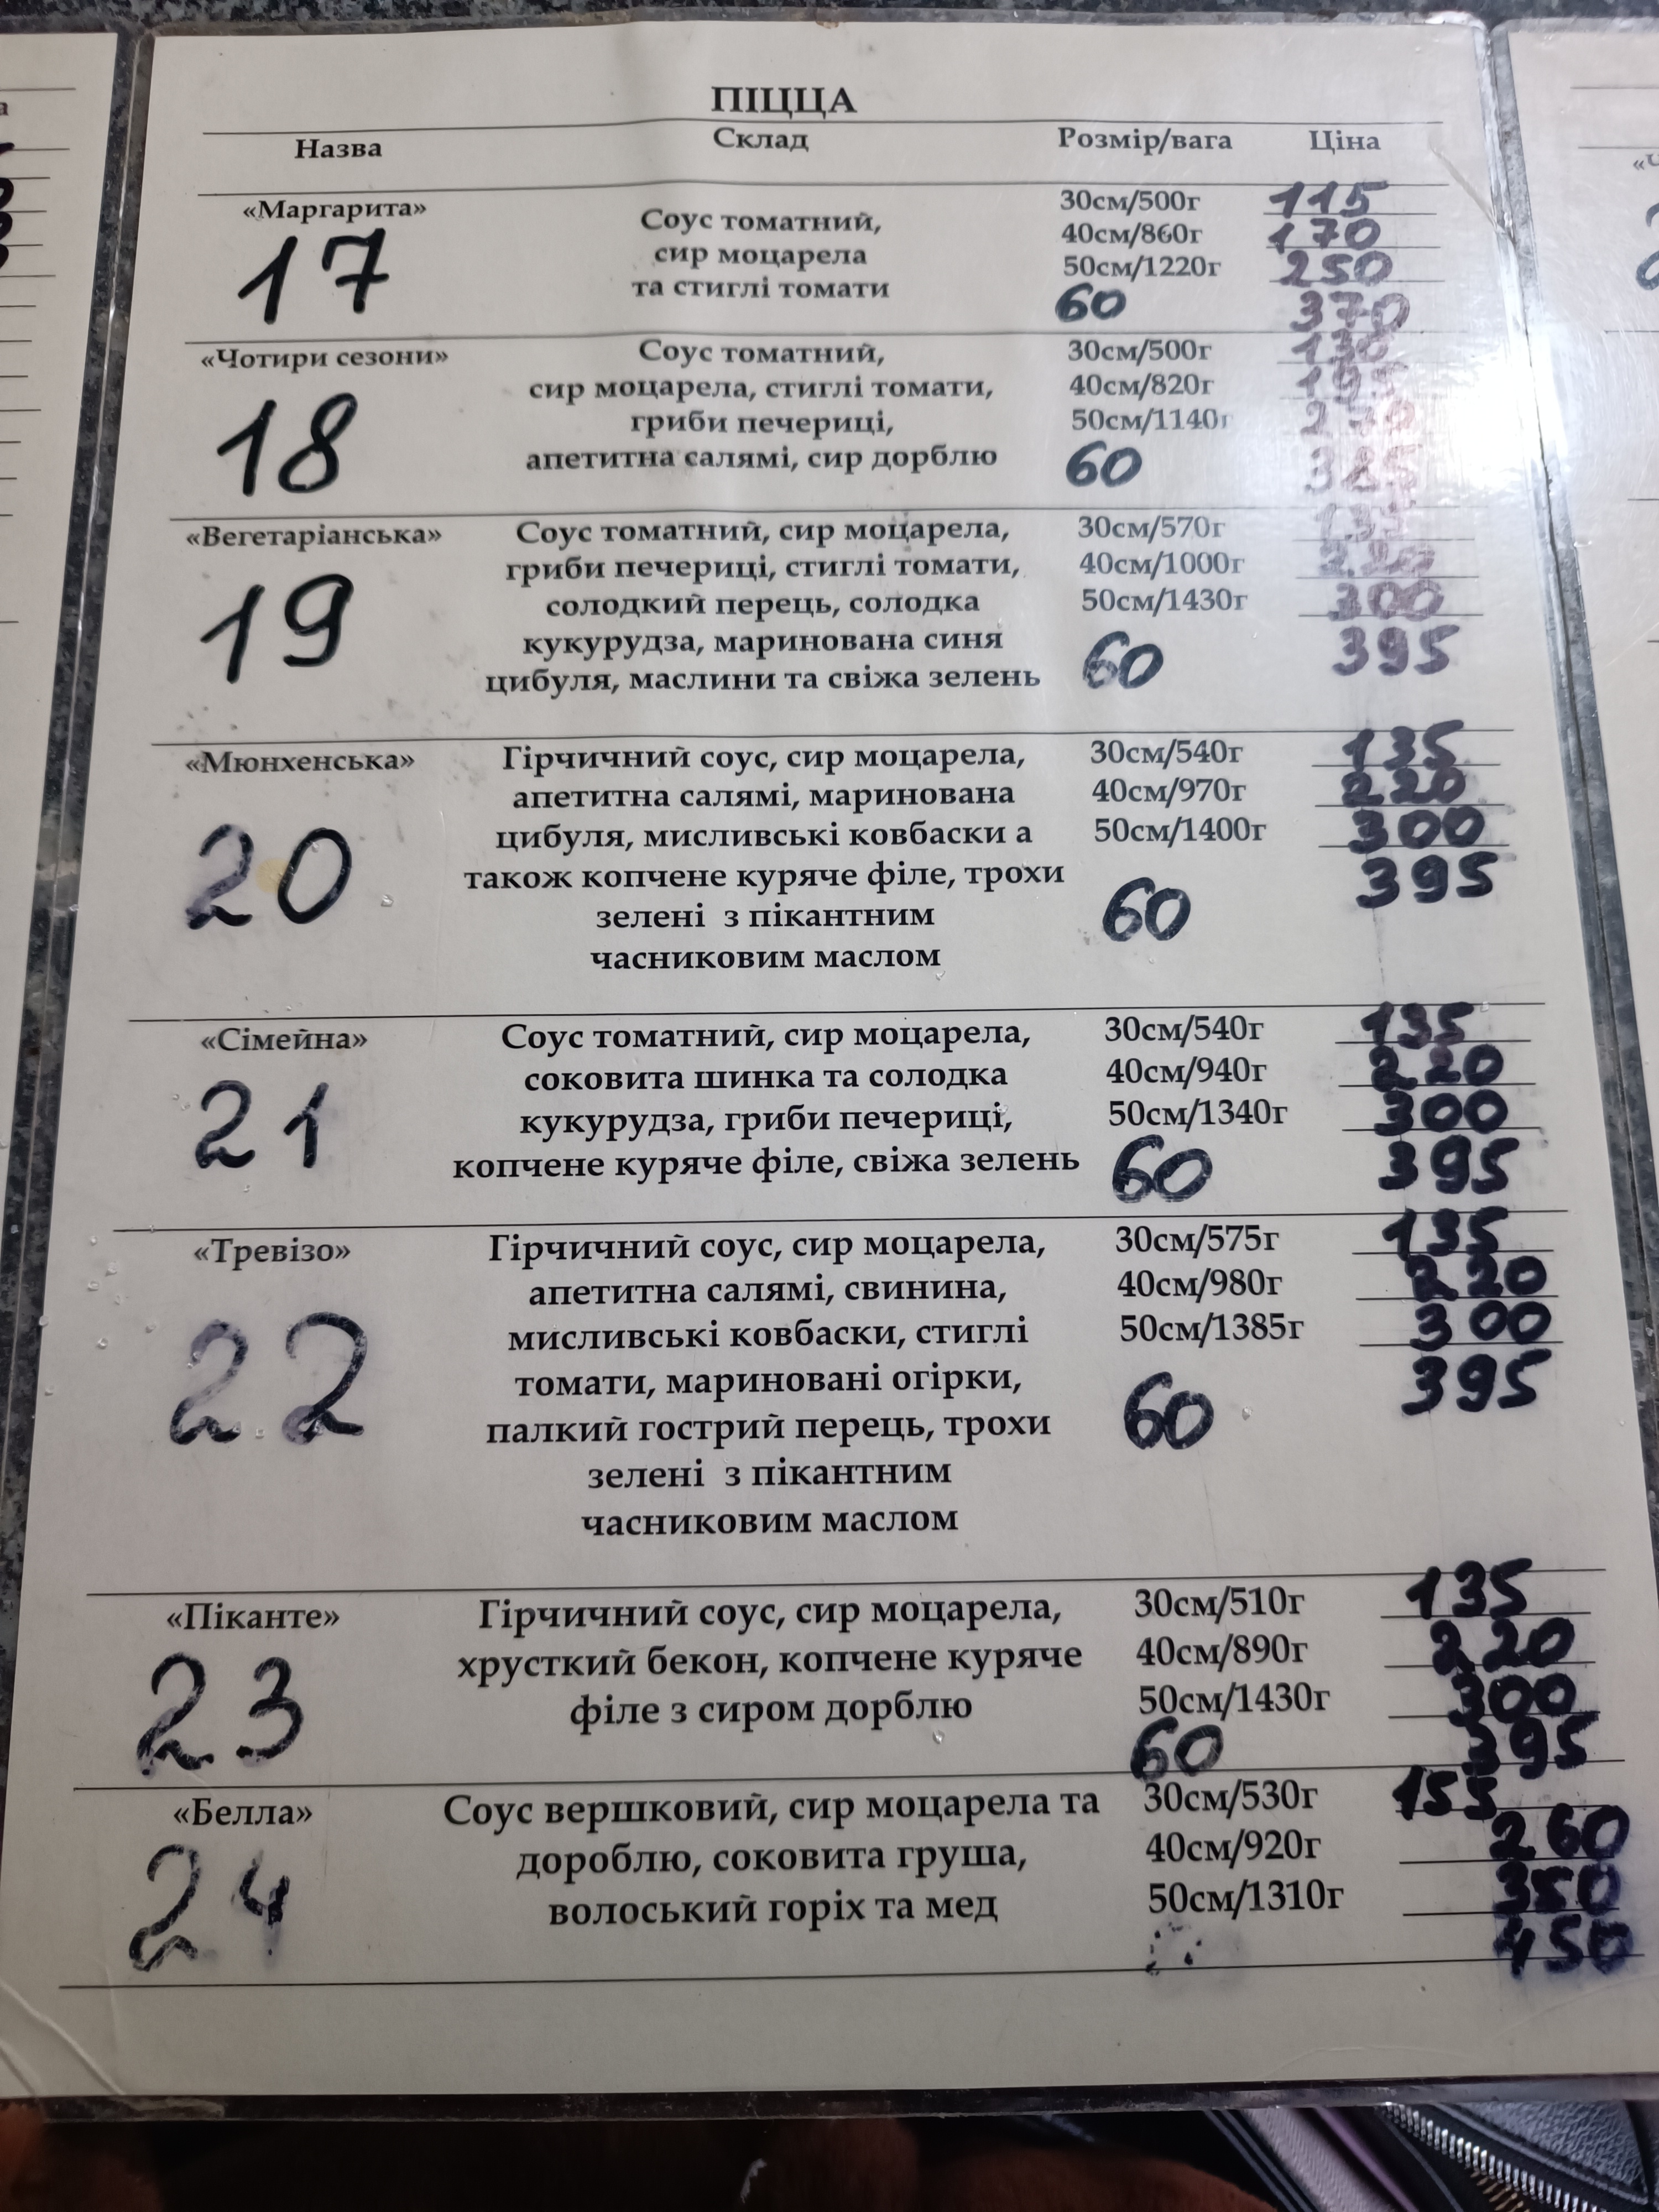 ПІЦЦА
Назва Склад Розмір/вага Ціна
«Маргарита» 30см/500г 115
17 Соус томатний, 40см/860г 170
сир моцарела 50см/1220г 250
та стиглі томати 60 370
«Чотири сезони» Соус томатний, 30см/500г 130
18 сир моцарела, стиглі томати, 40см/820г 195
гриби печериці, 50см/1140г
апетитна салямі, сир дорблю 60 385
«Вегетаріанська» Соус томатний, сир моцарела, 30см/570г
19 гриби печериці, стиглі томати, 40см/1000г 220
солодкий перець, солодка 50см/1430г 300
кукурудза, маринована синя 60 395
цибуля, маслини та свіжа зелень
«Мюнхенська» Гірчичний соус, сир моцарела, 30см/540г 135
20 апетитна салямі, маринована 40см/970г 220
цибуля, мисливські ковбаски а 50см/1400г 300
також копчене куряче філе, трохи 60 395
зелені з пікантним
часниковим маслом
«Сімейна» Соус томатний, сир моцарела, 30см/540г 135
21 соковита шинка та солодка 40см/940г 220
кукурудза, гриби печериці, 50см/1340г 300
копчене куряче філе, свіжа зелень 60 395
«Тревізо» Гірчичний соус, сир моцарела, 30см/575г 135
22 апетитна салямі, свинина, 40см/980г 220
мисливські ковбаски, стиглі 50см/1385г 300
томати, мариновані огірки, 60 395
палкий гострий перець, трохи
зелені з пікантним
часниковим маслом
«Піканте» Гірчичний соус, сир моцарела, 30см/510г 135
23 хрусткий бекон, копчене куряче 40см/890г 220
філе з сиром дорблю 50см/1430г 300
60 395
«Белла» Соус вершковий, сир моцарела та 30см/530г 155
24 дороблю, соковита груша, 40см/920г 260
волоський горіх та мед 50см/1310г 350
450